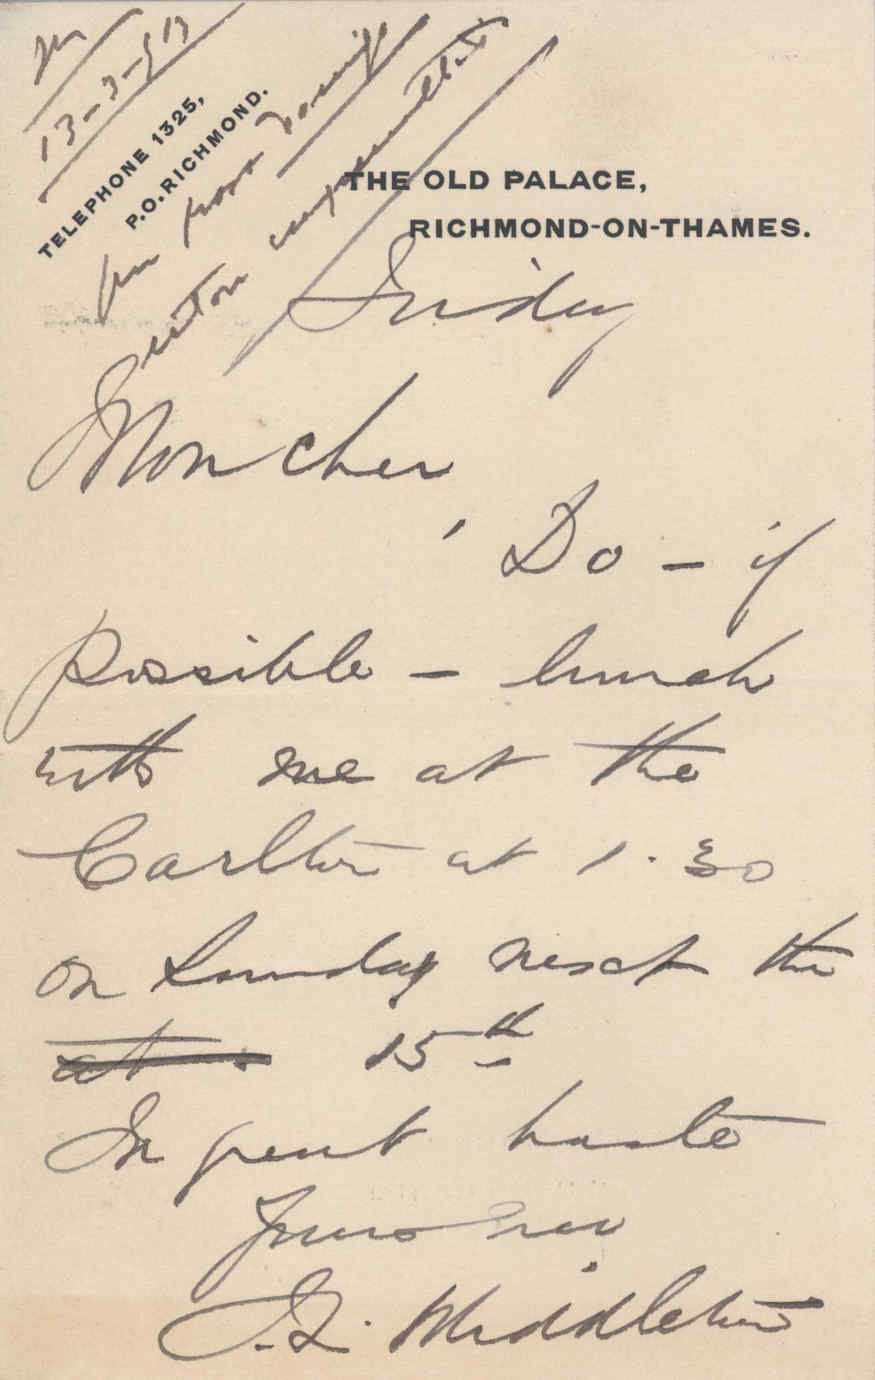 TELEPHONE 1325,
P.O. RICHMOND.
THE OLD PALACE,
RICHMOND-ON-THAMES.
Friday
Mon cher
Do – if
possible – lunch
with me at the
Carlton at 1.30
on Sunday next the
at 15th
In great haste
Yours ever
J.L. Middleton